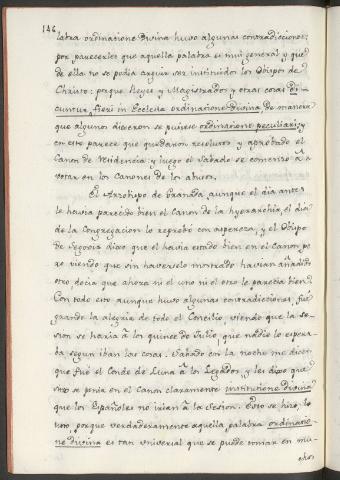 146
latra ordinatione Divina huvo algunas contradiciones
por parecerles que aquella palabra es mui general y que
de ella no se podia arguir ser instituidos los Obispos de
Christo: porque Reyes y Magistrados y otras cosas di-
cuntur fieri in Ecclesia ordinatione divina, de manera
que algunos dixeron se pusiese ordinatione peculiari, y
en esto parece que quedaron resolutos y aprobado el
Canon de Residencia y luego el Sabado se comenzó á
votar en los Canones de los abusos.
El Arzobispo de Granada aunque el dia antes
le havia parecido bien el Canon de la hyerarchia, el dia
de la Congregacion lo reprobó con aspereza, y el Obispo
de Segovia dixo que el havia estado bien en el Canon pe
ro viendo que sin haverselo mostrado havian añadido
otro, decia que ahora ni el uno ni el otro le parecia bien.
Con todo esto aunque huvo algunas contradiciones, fue
grande la alegria de todo el Concilio, viendo que la se-
sion se haria á los quince de Julio, que nadie lo espera-
ba segun iban las cosas. Sabado en la noche me dicen
que fué el Conde de Luna á los Legados, y les dixo que
sino se ponia en el Canon claramente institutione divina
que los Españoles no irian á la Sesion. Esto se hizo, lo
uno, porque verdaderamente aquella palabra ordinatio-
ne divina es tan universal que se puede tomar en mu-
chos